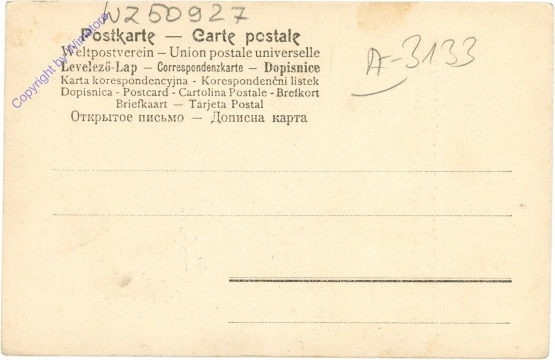 WZ50927
Postkarte — Carte postale
Weltpostverein — Union postale universelle
Levelező-Lap — Correspondenzkarte — Dopisnice
Karta korespondencyjna - Korespondenční listek
Dopisnica - Postcard - Cartolina Postale - Brefkort
Briefkaart — Tarjeta Postal
Открытое письмо — Дописна карта
A-3133
Copyright by Winstore